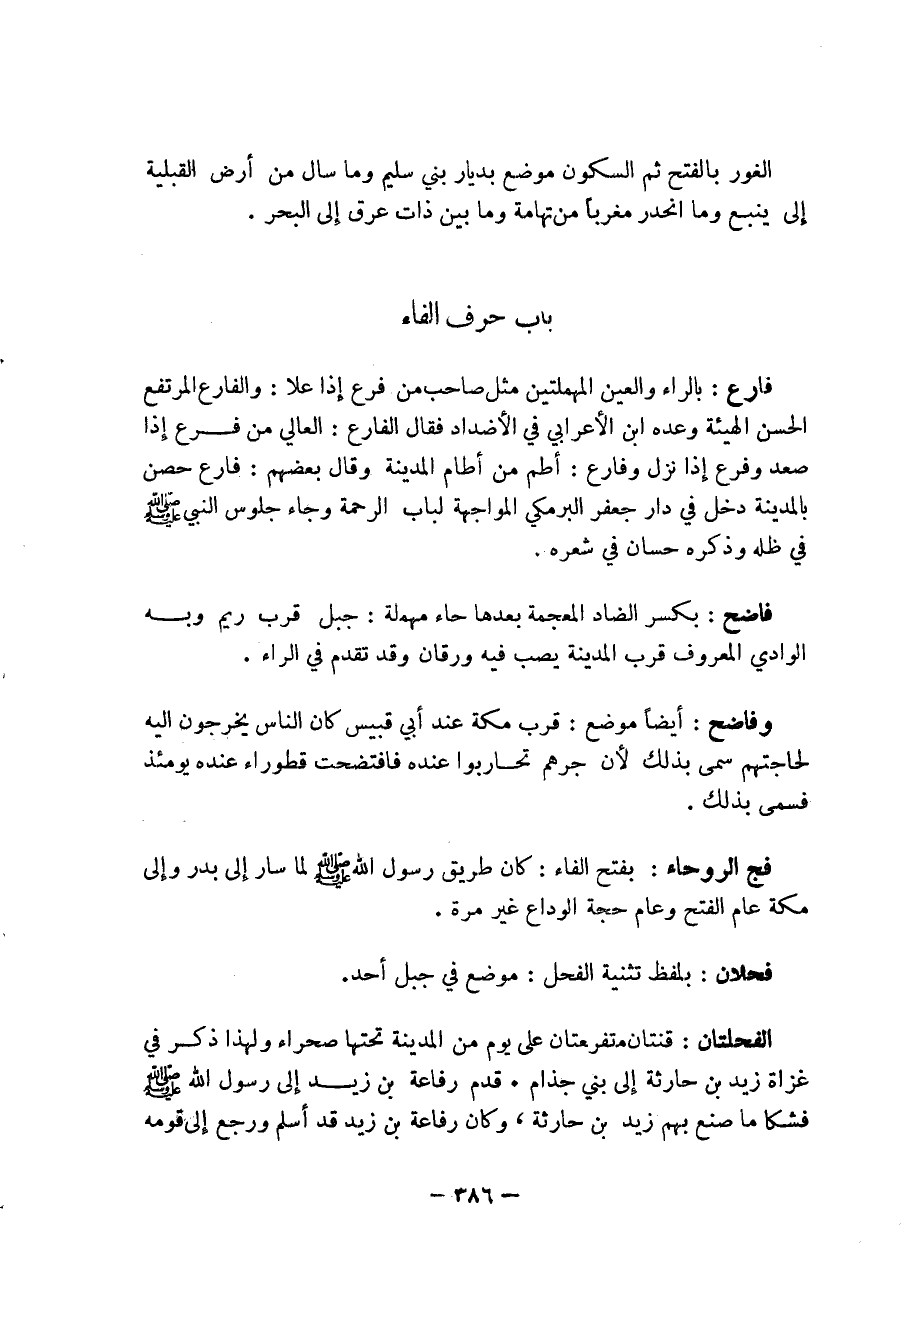 الغور بالفتح ثم السكون موضع بديار بني سليم وما سال من أرض القبلية
إلى ينبع وما انحدر مغرباً من تهامة وما بين ذات عرق إلى البحر .
باب حرف الفاء
فارع : بالراء والعين المهملتين مثل صاحب من فرع إذا علا : والفارع المرتفع
الحسن الهيئة وعده ابن الأعرابي في الأضداد فقال الفارع : العالي من فـرع إذا
صعد وفرع إذا نزل وفارع : أطم من أطام المدينة وقال بعضهم : فارع حصن
بالمدينة دخل في دار جعفر البرمكي المواجهة لباب الرحمة وجاء جلوس النبي ﷺ
في ظله وذكره حسان في شعره .
فاضح : بكسر الضاد المعجمة بعدها حاء مهملة : جبل قرب ريم وبـه
الوادي المعروف قرب المدينة يصب فيه ورقان وقد تقدم في الراء .
وفاضح : أيضاً موضع : قرب مكة عند أبي قبيس كان الناس يخرجون اليه
لحاجتهم سمى بذلك لأن جرهم تحـاربوا عنده فافتضحت قطوراء عنده يومئذ
فسمى بذلك .
فج الروحاء : بفتح الفاء : كان طريق رسول الله ﷺ لما سار إلى بدر وإلى
مكة عام الفتح وعام حجة الوداع غير مرة .
فحلان : بلفظ تثنية الفحل : موضع في جبل أحد.
الفحلتان : قنتان متفرعتان على يوم من المدينة تحتها صحراء ولهذا ذكـر في
غزاة زيد بن حارثة إلى بني جذام . قدم رفاعة بن زيـد إلى رسول الله ﷺ
فشكا ما صنع بهم زيد بن حارثة ، وكان رفاعة بن زيد قد أسلم ورجع إلى قومه
– ٣٨٦ –